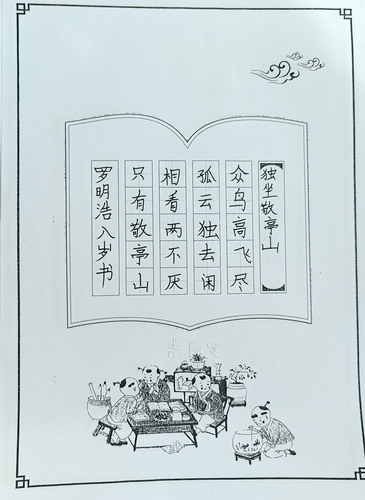 独坐敬亭山
众鸟高飞尽
孤云独去闲
相看两不厌
只有敬亭山
罗明浩八岁书